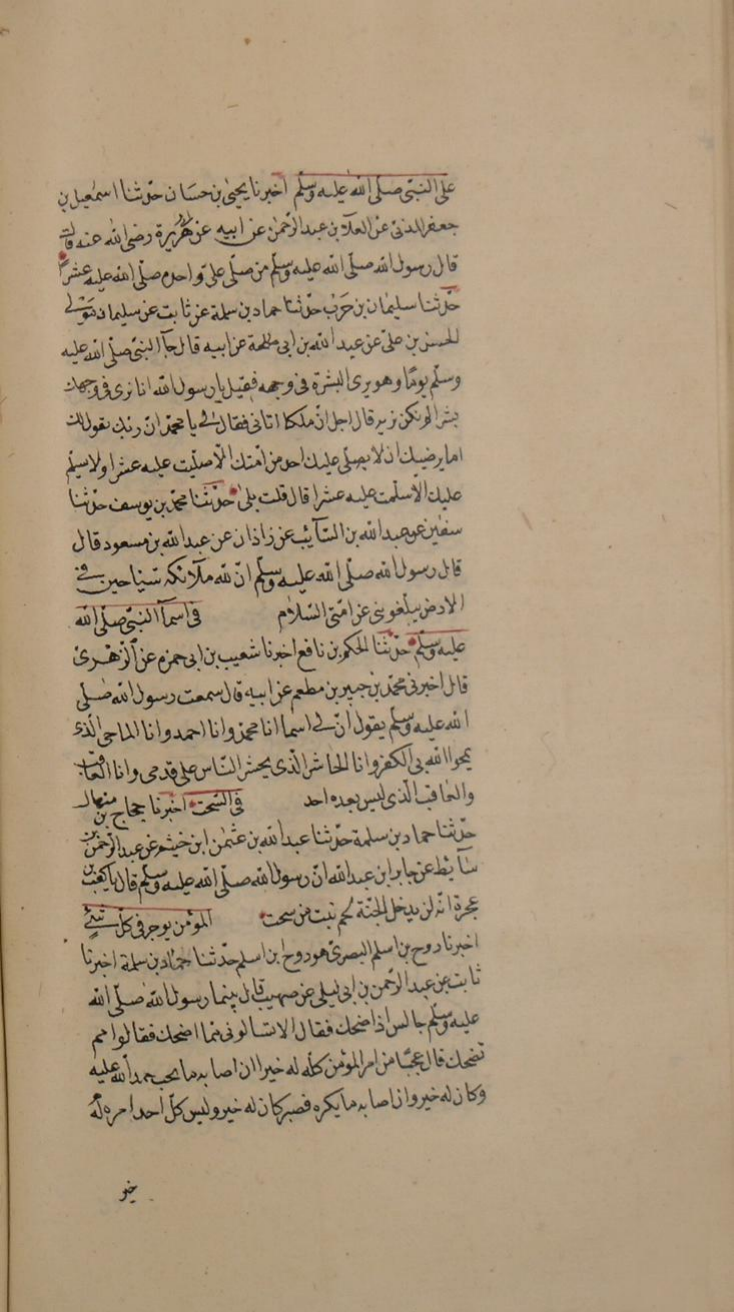 على النبي صلّى الله عليه وسلّم اخبرنا يحيى بن حسان حدّثنا اسمعيل بن
جعفر المدني عن العلآ بن عبد الرّحمن عن ابيه عن ابي هريرة رضي الله عنه قال
قال رسول الله صلّى الله عليه وسلّم من صلّى عليّ واحدة صلّى الله عليه عشرا
حدّثنا سليمان بن حرب حدّثنا حماد بن سلمة عن ثابت عن سليمان مولى
الحسن بن علي عن عبد الله بن ابي طلحة عن ابيه قال جآ النبي صلّى الله عليه
وسلّم يومًا وهو يرى البشرة في وجهه فقيل يا رسول الله انا نرى في وجهك
بشرا لم نكن نريه قال اجل انّ ملكا اتاني فقال لي يا محمّد انّ ربّك يقول لك
اما يرضيك ان لا يصلّي عليك احد من امّتك الّا صلّيت عليه عشرا ولا يسلّم
عليك الّا سلّمت عليه عشرا قال قلت بلى حدّثنا محمّد بن يوسف حدّثنا
سفين عن عبد الله بن السّآيب عن زاذان عن عبد الله بن مسعود قال
قال رسول الله صلّى الله عليه وسلّم انّ لله ملآئكة سيّاحين في
الارض يبلّغوني عن امّتي السّلام في اسمآ النبيّ صلّى الله
عليه وسلّم حدّثنا الحكم بن نافع اخبرنا شعيب بن ابي حمزه عن الزّهريّ
قال اخبرني محمّد بن جبير بن مطعم عن ابيه قال سمعت رسول الله صلّى
الله عليه وسلّم يقول انّ لي اسمآ انا محمّد وانا احمد وانا الماحي الّذي
يمحوا الله بي الكفر وانا الحاشر الّذي يحشر النّاس على قدمي وانا العاقب
والعاقب الّذي ليس بعده احد في السّحت اخبرنا حجاج بن منهال
حدّثنا حماد بن سلمة حدّثنا عبد الله بن عثمن ابن خيثم عن عبد الرّحمن بن
سآبط عن جابر ابن عبد الله انّ رسول الله صلّى الله عليه وسلّم قال يا كعب بن
عجرة انّه لن يدخل الجنّة لحم نبت من سحت المؤمن يوجر في كلّ شيْ
اخبرنا روح بن اسلم البصريّ هو روح ابن اسلم حدّثنا حمّاد بن سلمة اخبرنا
ثابت عن عبد الرّحمن بن ابي ليلى عن صهيب قال بينما رسول الله صلّى الله
عليه وسلّم جالس اذا ضحك فقال الا تسالوني ممّا اضحك فقالوا مم
تضحك قال عجبًا من امر المؤمن كلّه له خير ان اصابه ما يحب حمد الله عليه
وكان له خير وان اصابه ما يكره فصبر كان له خير وليس كلّ احد امره له
خير